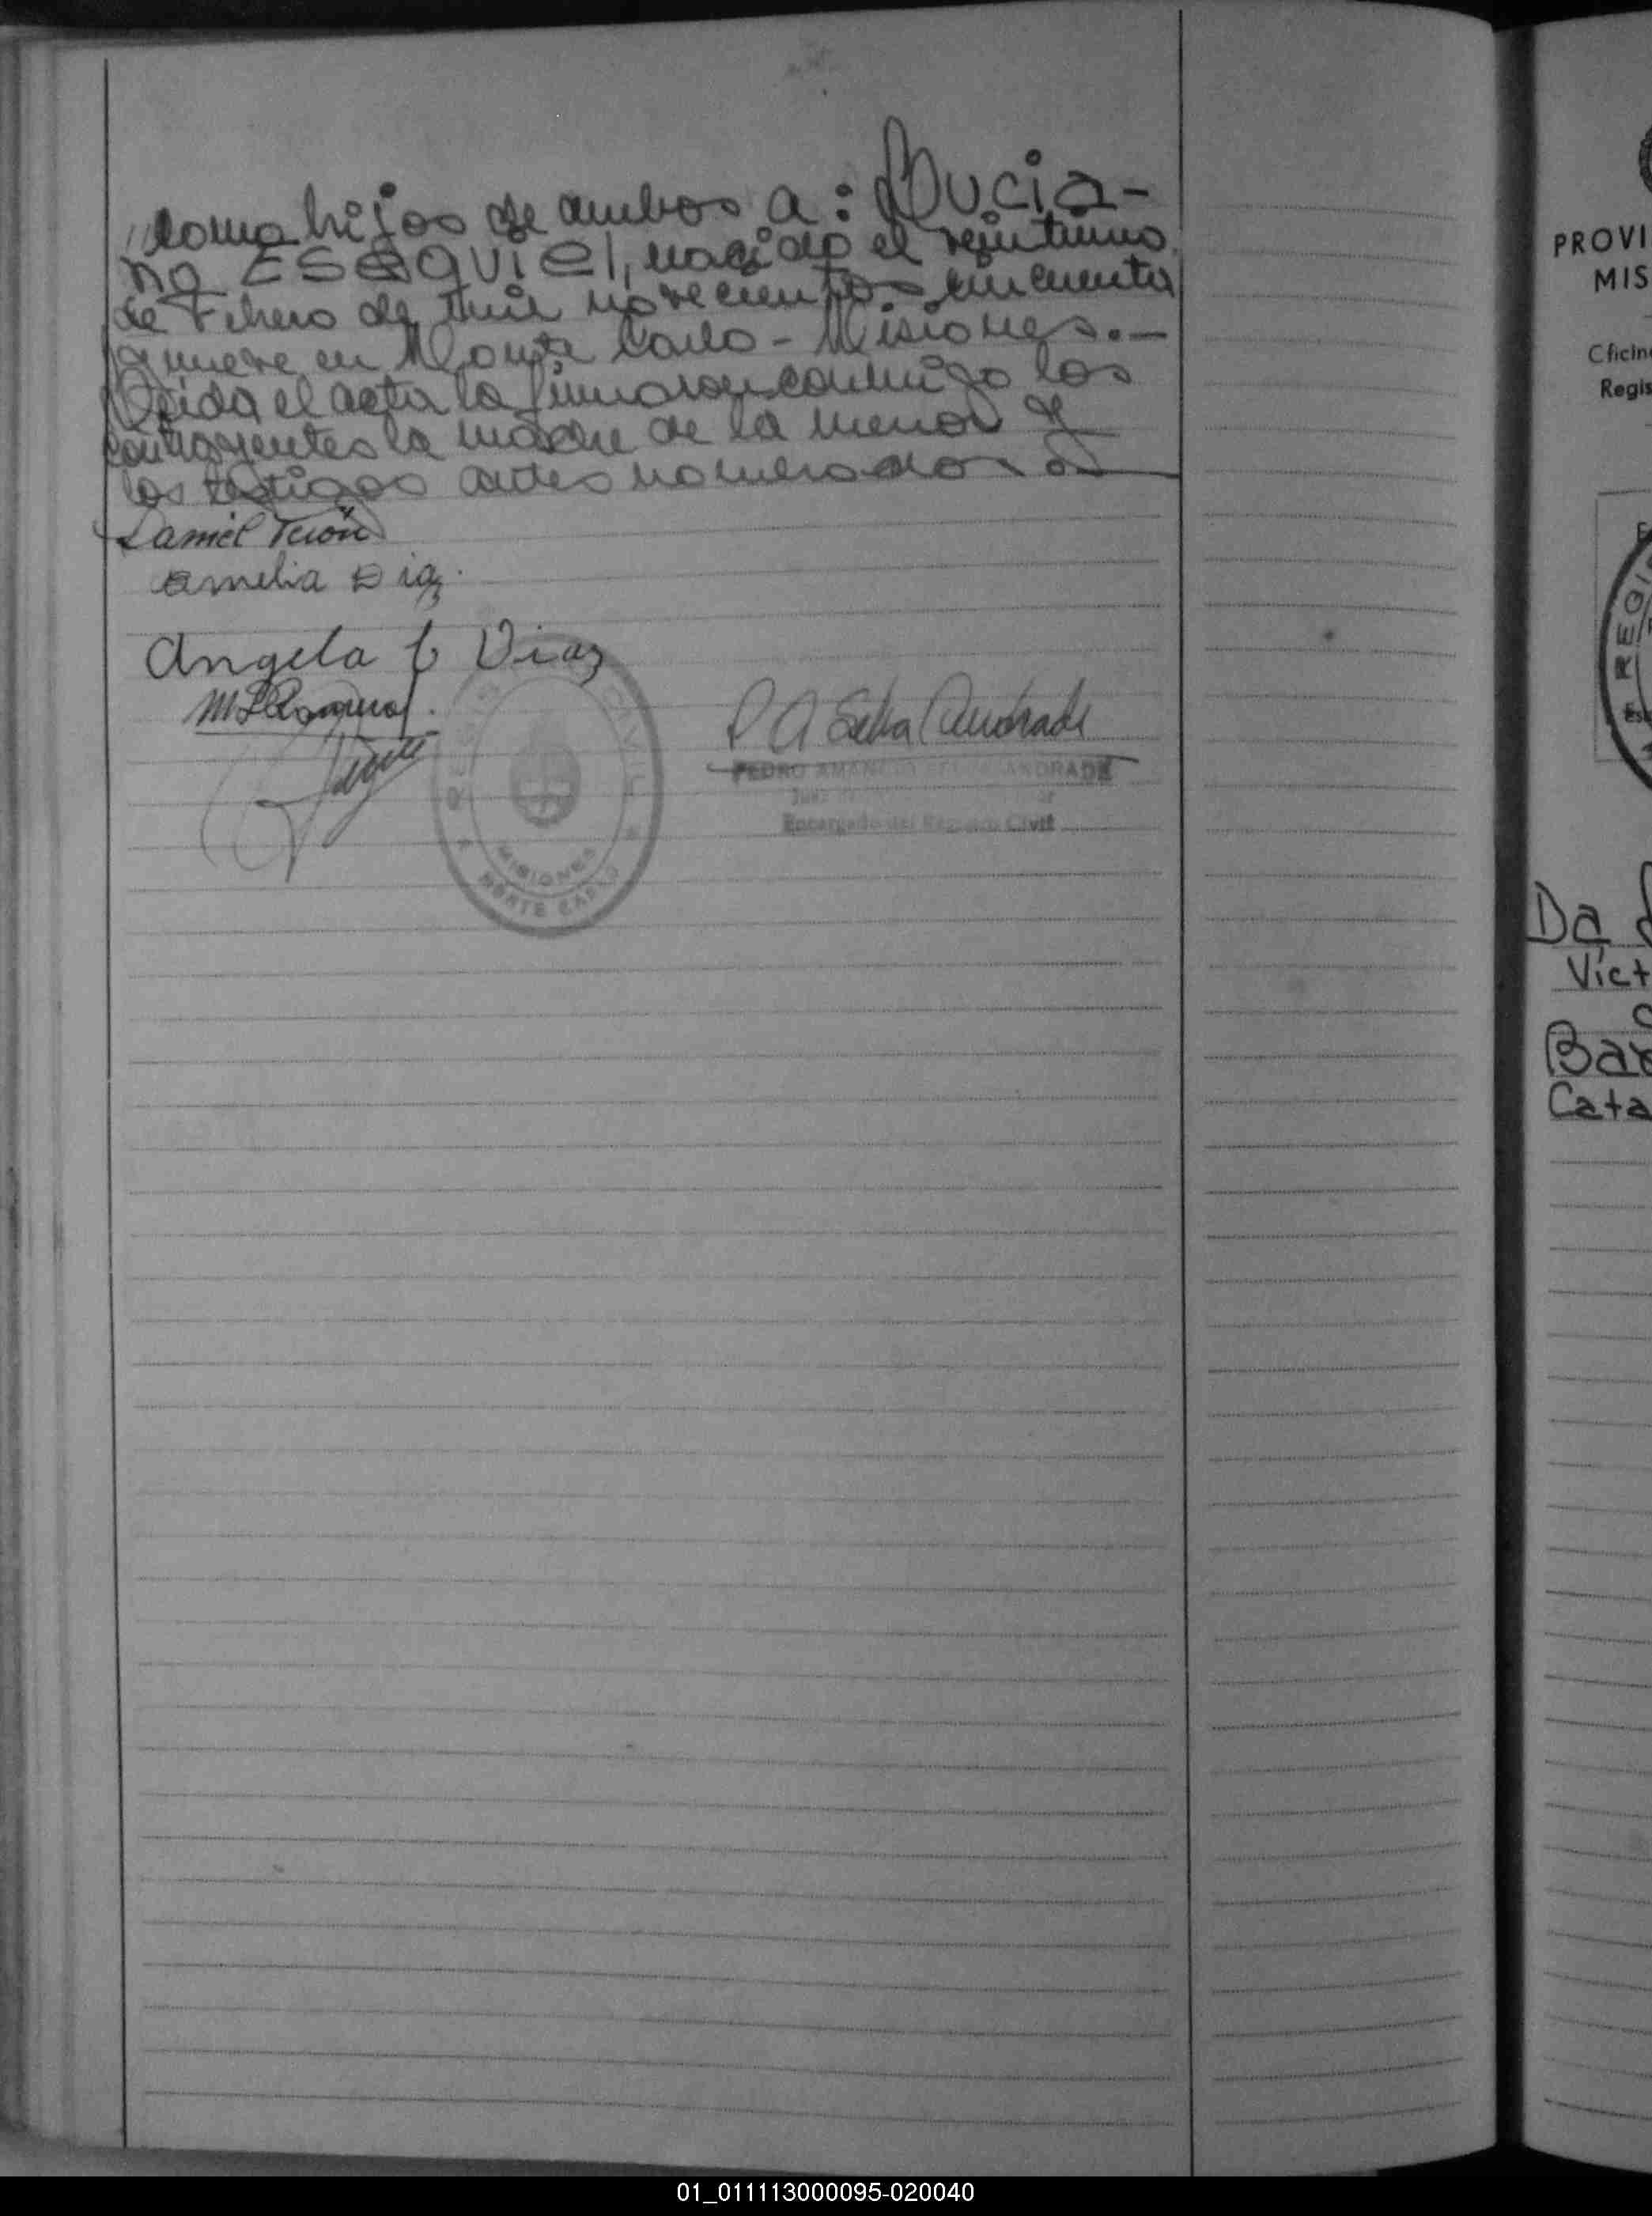 "como hijos de ambos a: Lucia-
no Esequiel, nacido el veintiuno
de Febrero de mil novecientos cincuenta
y nueve en Monte Carlo - Misiones.-
Leida el acta la firmaron conmigo los
contrayentes la madre de la menor y
los testigos antes nombrados
Daniel
Amelia Diaz.
Angela Diaz
P A Silva Andrade
PEDRO AMANCIO SILVA ANDRADE
Juez
Encargado del Registro Civil
REGISTRO CIVIL
MISIONES
MONTE CARLO
PROVI
MIS
Oficin
Regis
REGIS
Da
Vict
Bar
Cata
01_011113000095-020040